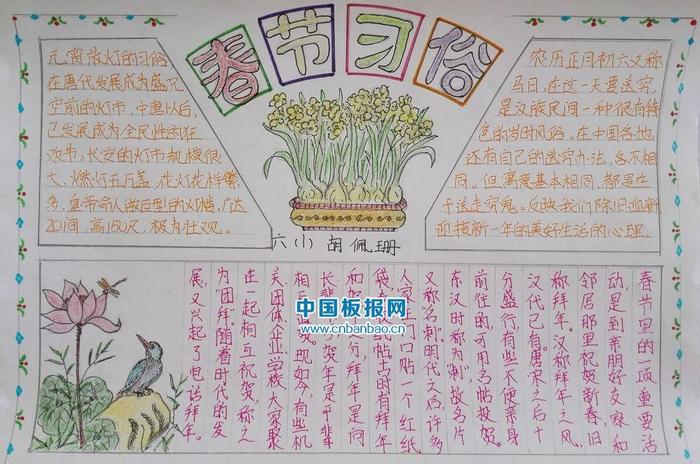 春节习俗
元宵放灯的习俗
在唐代发展成为盛况
空前的灯市,中唐以后,
已发展成为全民性的狂
欢节。长安的灯市规模很
大,燃灯五万盏,花灯花样繁
多,皇帝命人做巨型的灯楼,广达
20间,高150尺,极为壮观。
农历正月初六又称
马日,在这一天要送穷,
是汉族民间一种很有特
色的岁时风俗。在中国各地
还有自己的送穷办法,各不相
同。但寓意基本相同,都是在
于送走穷鬼。反映我们除旧迎新,
迎接新一年的美好生活的心理。
六(1) 胡佩珊
春节里的一项重要活
动,是到亲朋好友家和
邻居那里祝贺新春,旧
称拜年。汉称拜年之风,
汉代已有。唐宋之后十
分盛行,有些不便亲身
前往的,可用名帖投贺。
东汉时称为"刺",故名片
又称"名刺"。明代之后,许多
人家在门口贴一个红纸
袋,收名帖,古时有拜年
和贺年之分,拜年是向
长辈,贺年是平辈
相 现如今,有些机
关、团体、企业、学校,大家聚
在一起相互祝贺,称之
为"团拜"。随着时代的发
展,又兴起了电话拜年。
中国板报网
www.cnbanbao.cn